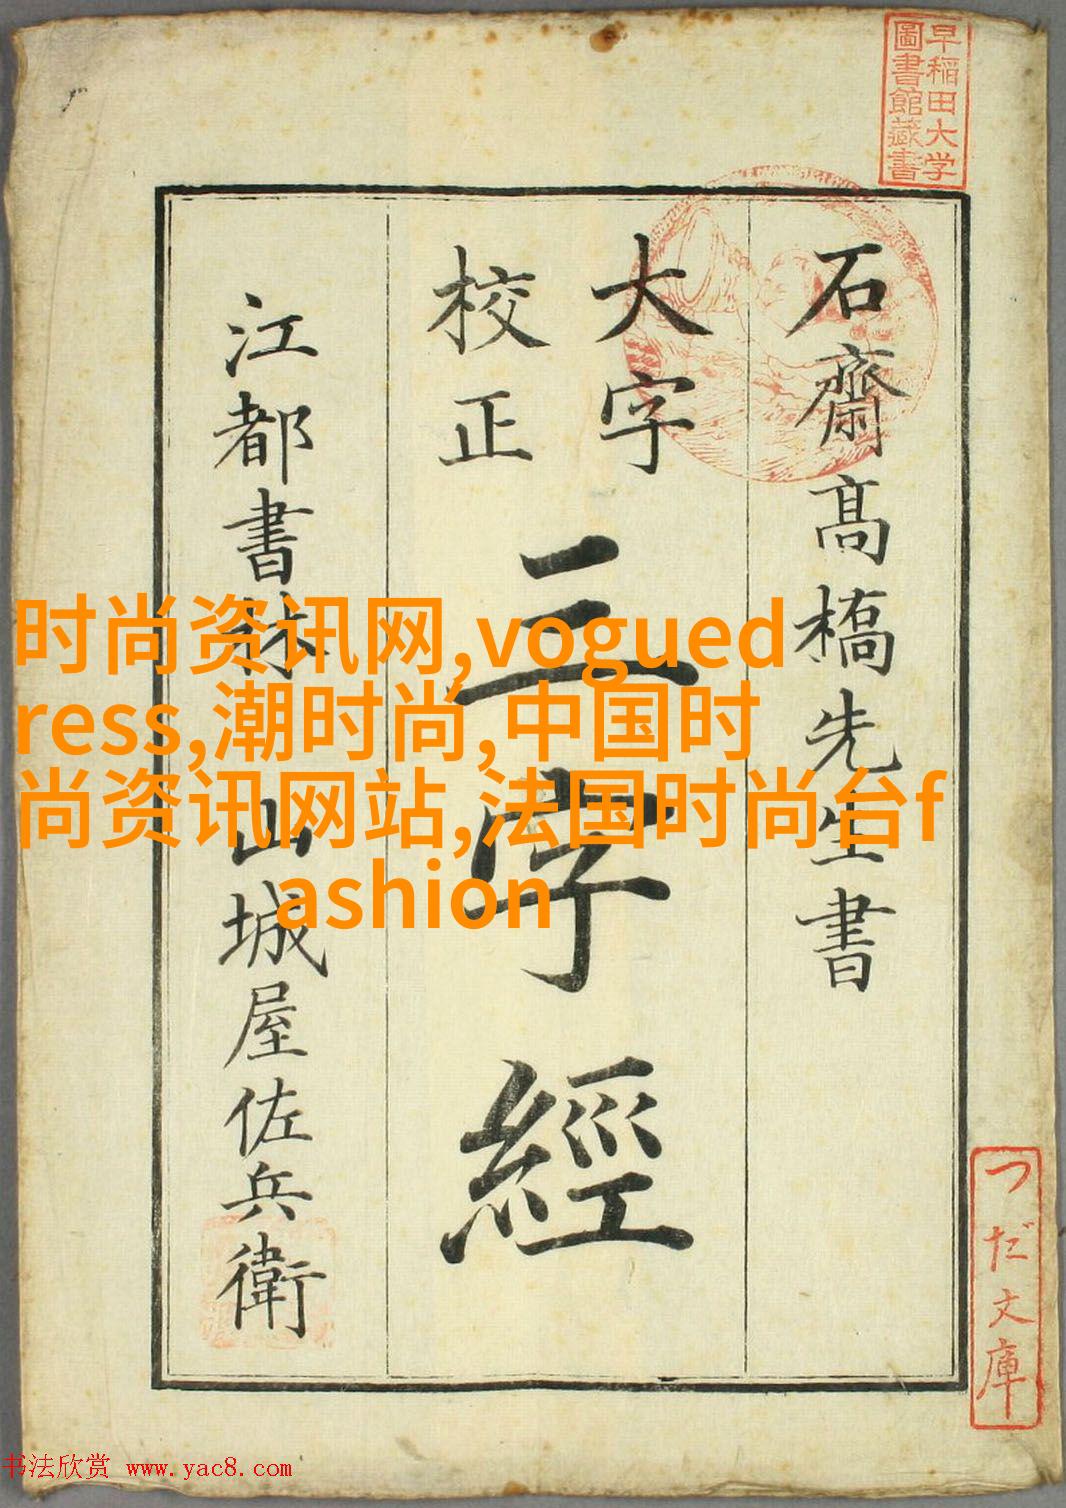 早稲田大学
圖書館藏書
石齋髙橋先生書
大字
校正
三字經
江都書林 山城屋佐兵衛
つだ文庫
时尚资讯网,vogued
ress,潮时尚,中国时
尚资讯网站,法国时尚台f
ashion
书法欣赏 www.yac8.com